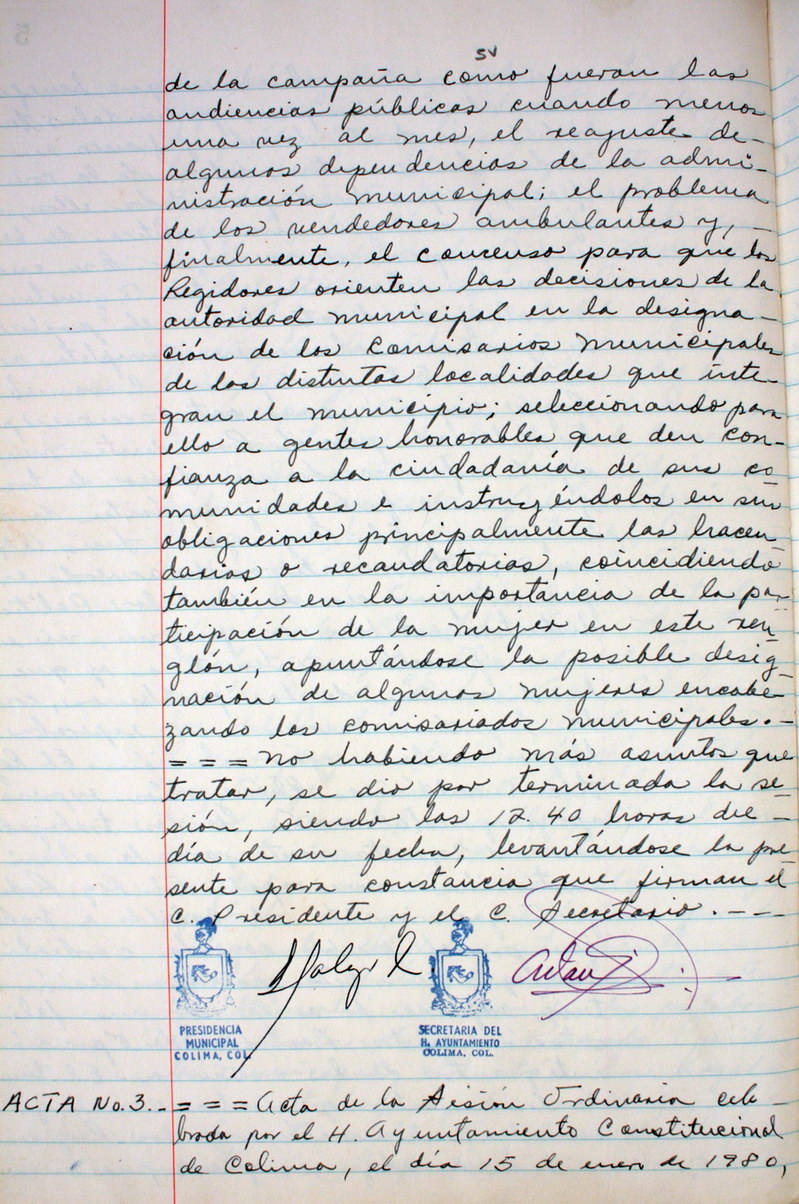 5v
de la campaña como fueran las
audiencias públicas cuando menos
una vez al mes, el reajuste de-
algunas dependencias de la admi-
nistración municipal; el problema
de los vendedores ambulantes y, -
finalmente, el concenso para que los
Regidores orienten las decisiones de la
autoridad municipal en la designa-
ción de los Comisarios Municipales
de las distintas localidades que inte-
gran el municipio; seleccionando para
ello a gentes honorables que den con-
fianza a la ciudadanía de sus co
munidades e instruyéndolos en sus
obligaciones principalmente las hacen
darias o recaudatorias, coincidiendo
también en la importancia de la par
ticipación de la mujer en este ren
glón, apuntándose la posible desig-
nación de algunas mujeres encabe-
zando los comisariados municipales.-
= = = No habiendo más asuntos que
tratar, se dio por terminada la se-
sión, siendo las 12.40 horas del -
día de su fecha, levantándose la pre
sente para constancia que firman el
C. Presidente y el C. Secretario. - - -
PRESIDENCIA
MUNICIPAL
COLIMA, COL.
SECRETARIA DEL
H. AYUNTAMIENTO
COLIMA, COL.
ACTA No. 3.- = = = Acta de la Sesión Ordinaria cele-
brada por el H. Ayuntamiento Constitucional
de Colima, el día 15 de enero de 1980,